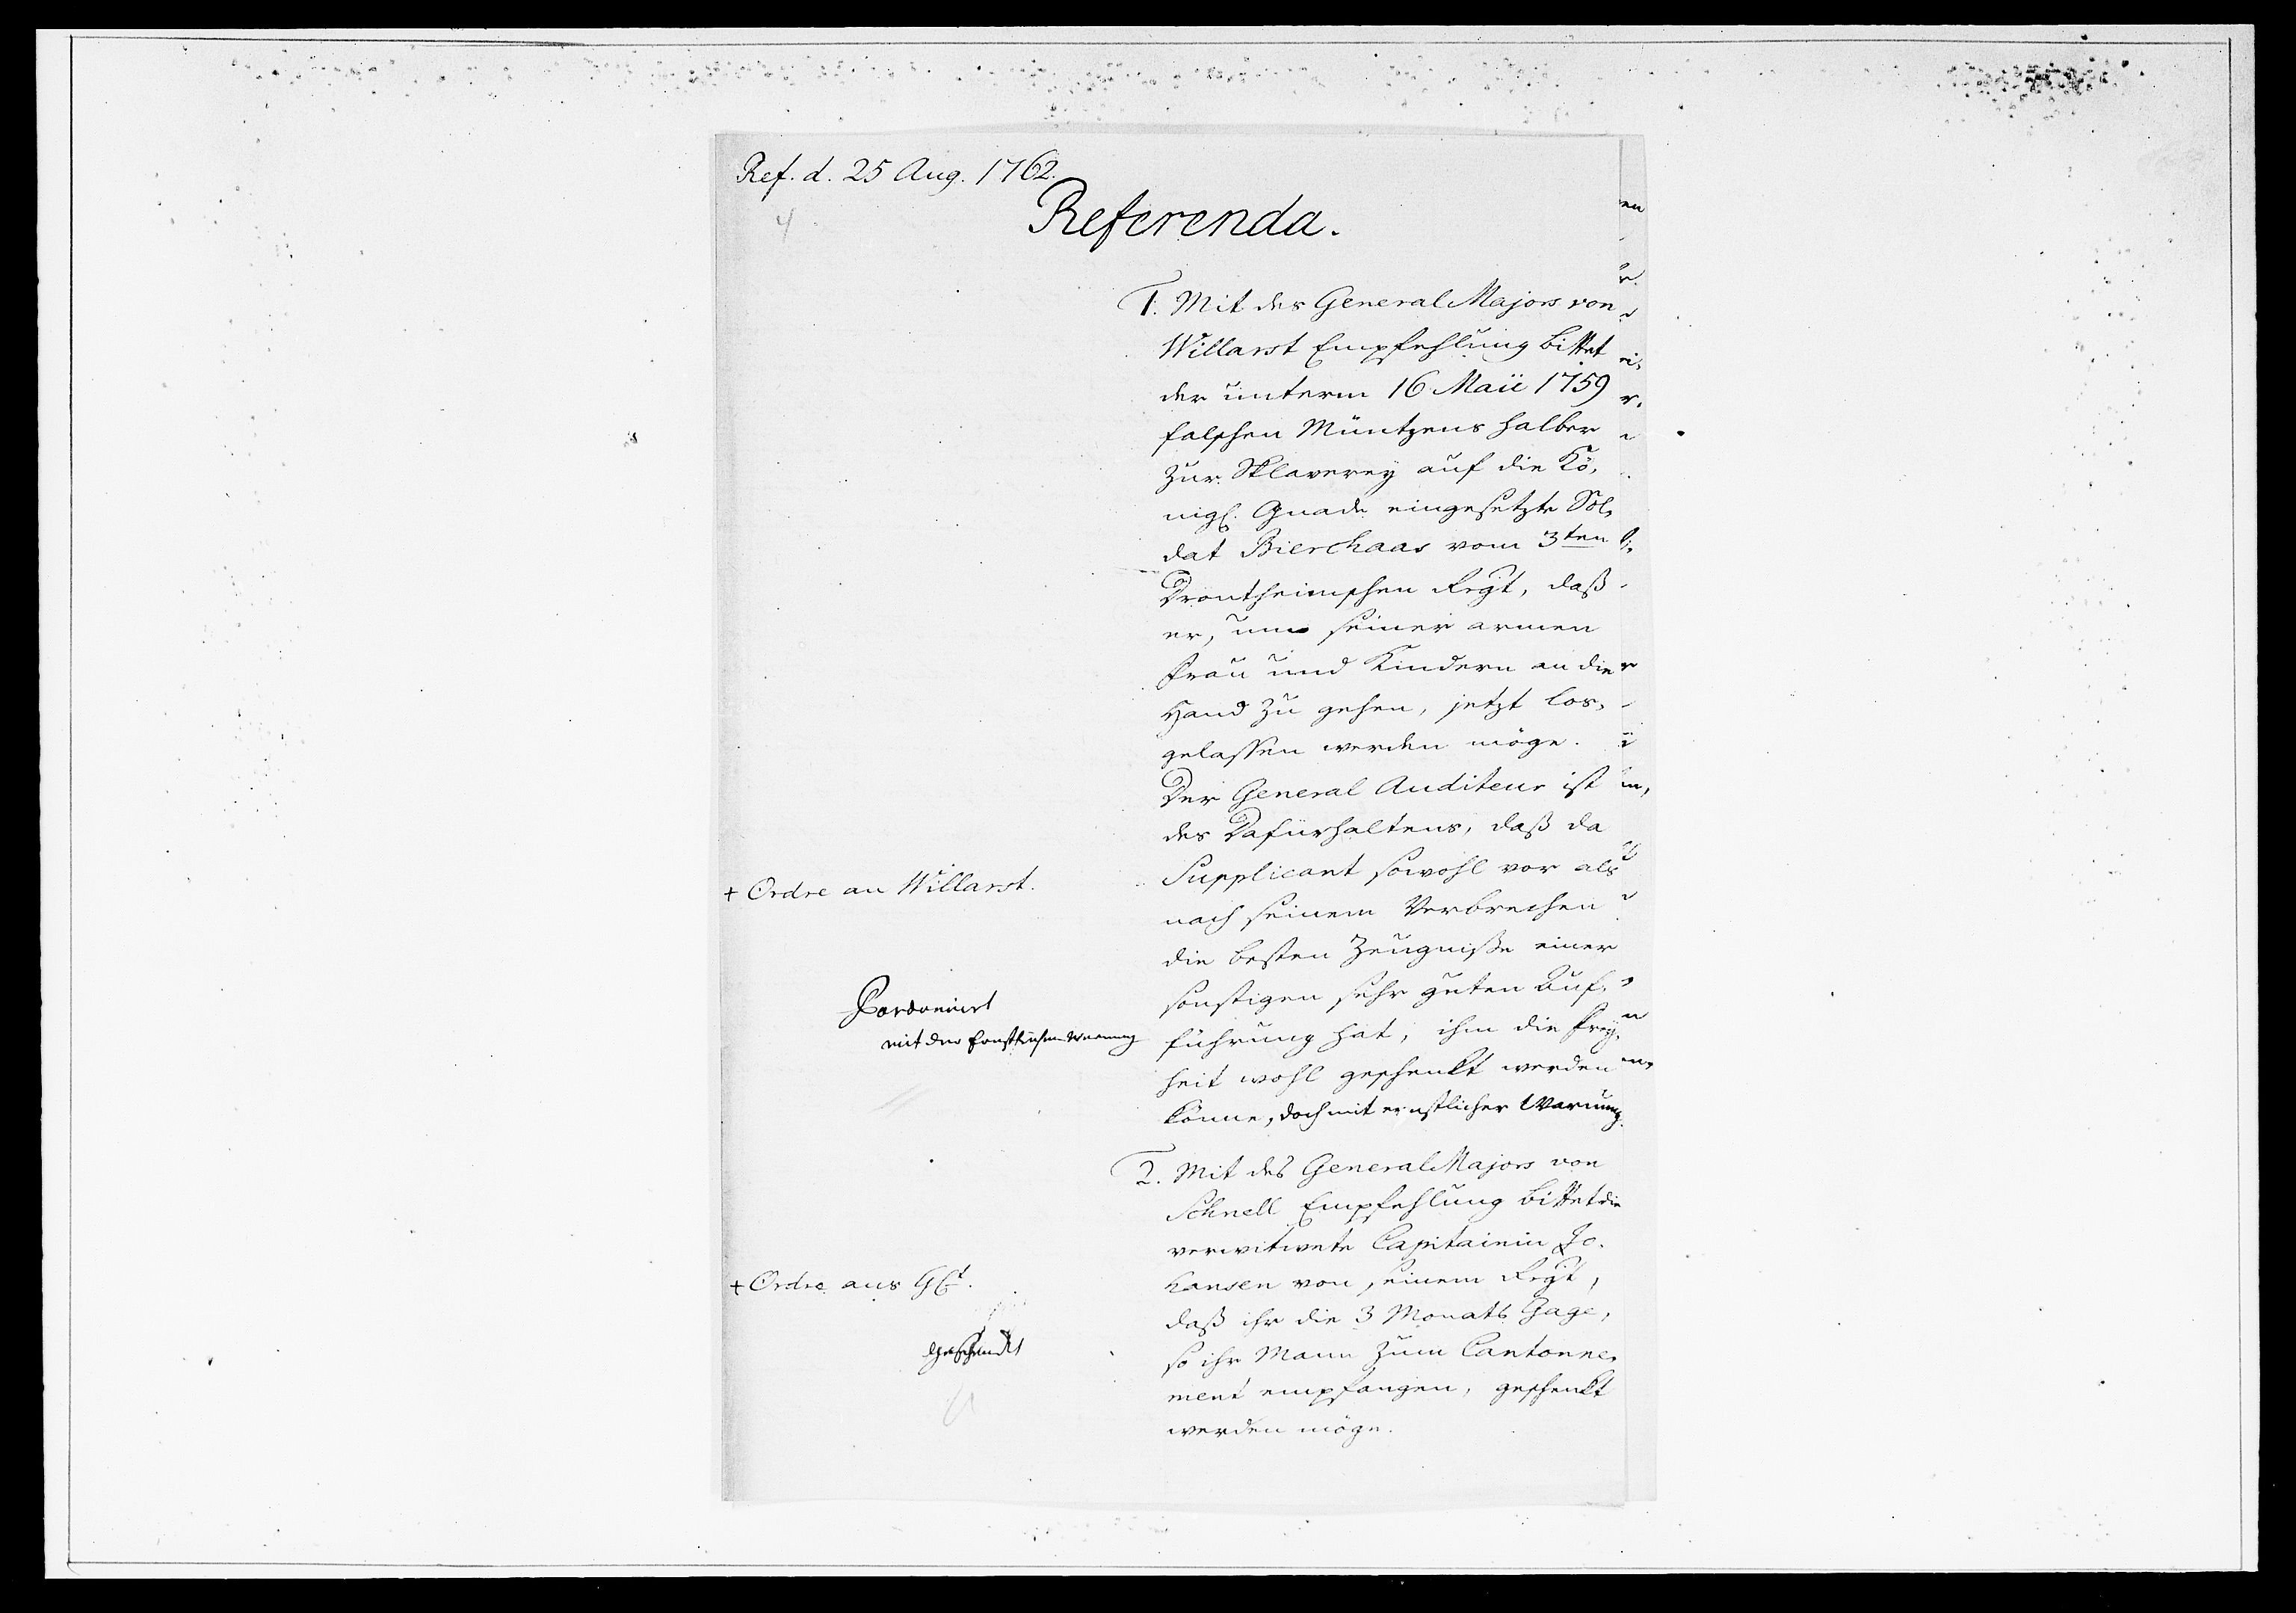 Ref. d. 25 Aug. 1762.
4
Referenda.
1. Mit des General Majors von
Willarst Empfehlung bittet
der unterm 16 Maii 1759
falschen Müntzens halber
zur Sklaverey auf die Kö,
nigl. Gnade eingesetzte Sol,
dat Bierchaas vom 3ten
Drontheimschen Regt, daß
er, um seiner armen
Frau und Kindern an die
Hand zu gehen, jetzt los,
gelassen werden möge.
Der General Auditeur ist
des Dafürhaltens, daß da
Supplicant sowohl vor als
nach seinem Verbrechen
die besten Zeugniße einer
sonstigen sehr guten Auf,
führung hat, ihm die Frey,
heit wohl geschenkt werden
könne, doch mit ernstlicher Warnung.
+ Ordre an Willarst.
Pardonnirt
mit der Ernstlichen Warnung
2. Mit des General Majors von
Schnell Empfehlung bittet die
verwitwete Capitainin Jo,
hansen von seinem Regt,
daß ihr die 3 Monats Gage,
so ihr Mann zum Cantonne,
ment empfangen, geschenkt
werden möge.
+ Ordre ans
Geschenckt